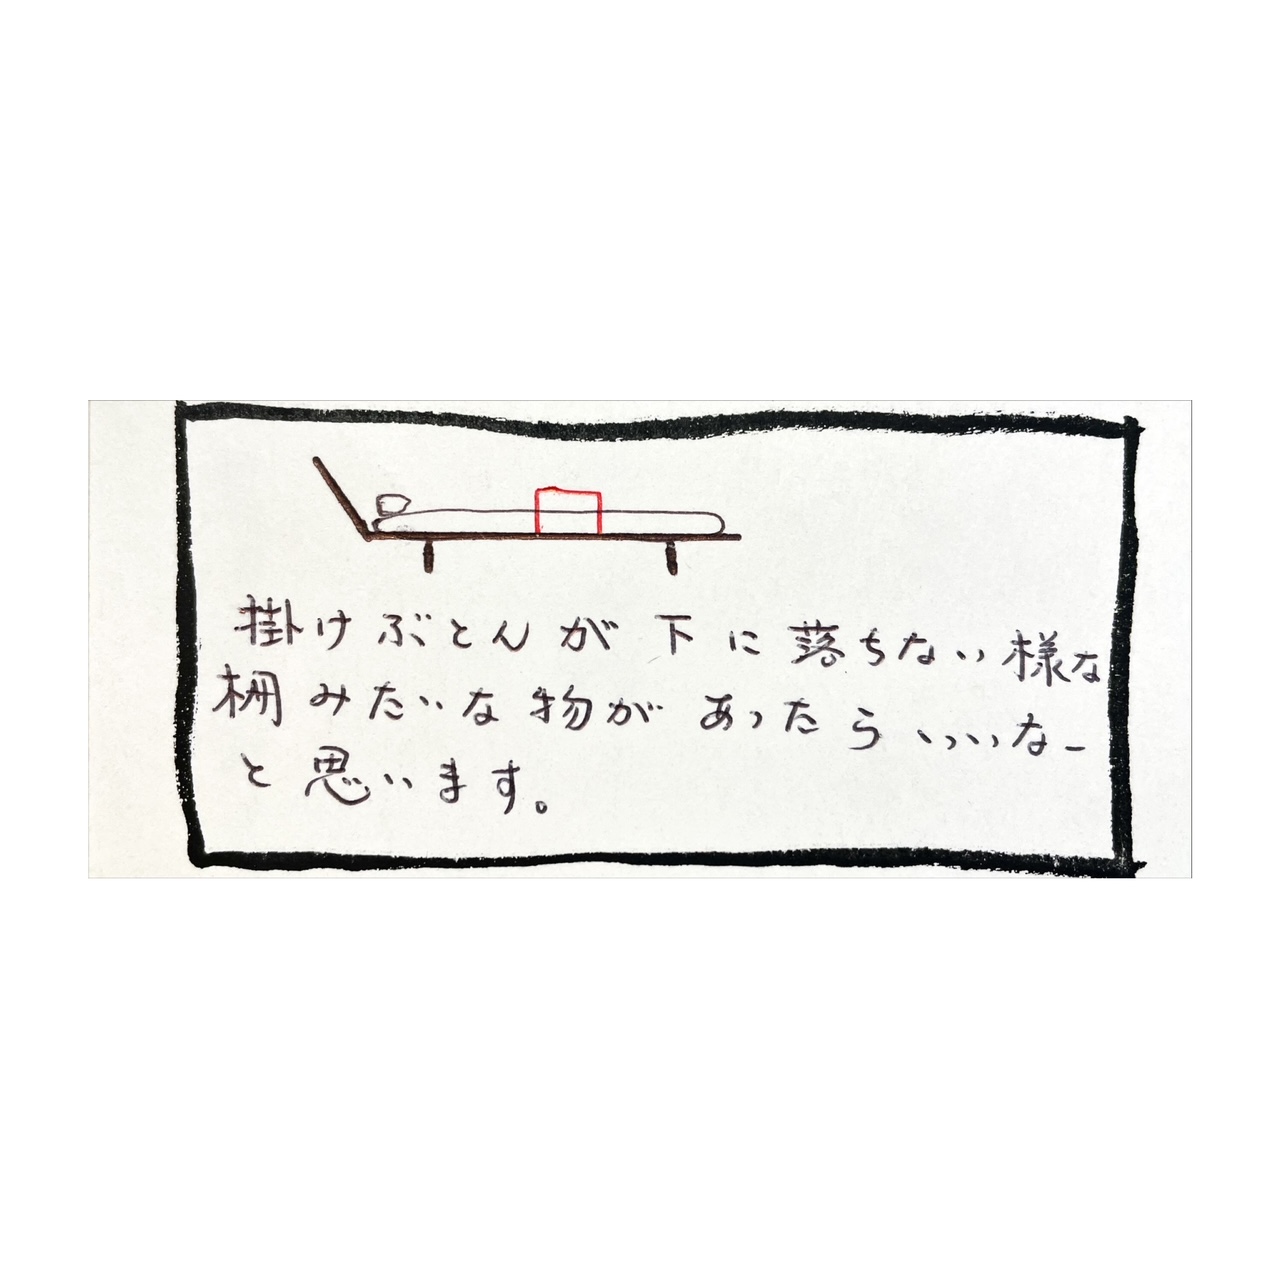 掛けぶとんが下に落ちない様な
柵みたいな物があったらいいなー
と思います。